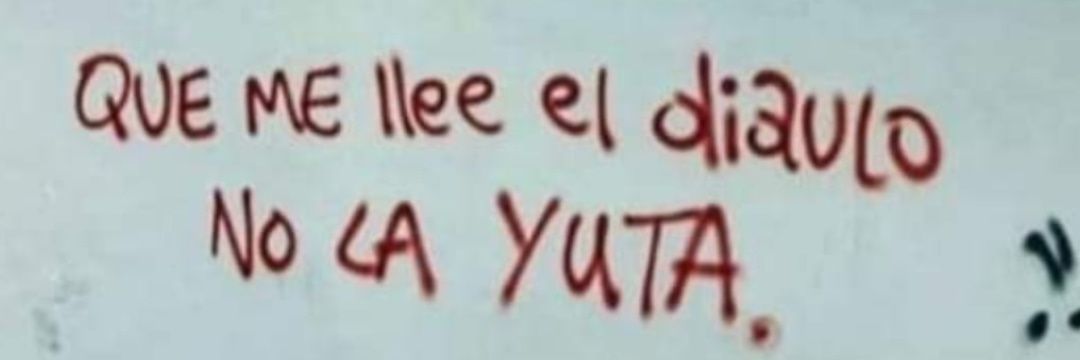 QUE ME llee el diaulo
NO LA YUTA.